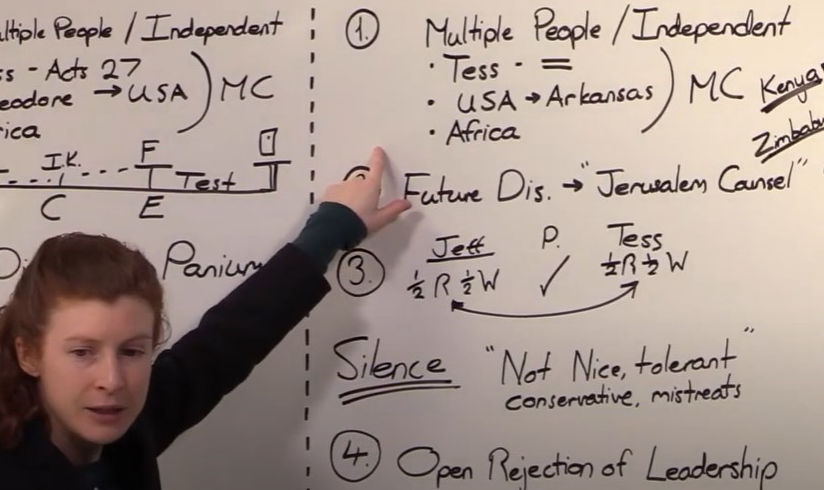 ltiple People / Independent
ss - Acts 27
eodore → USA ) MC
rica
I.K. F
Test
C E
Panium
1. Multiple People / Independent
· Tess - =
· USA → Arkansas ) MC Kenya
· Africa Zimbabw
Future Dis. → "Jerusalem Counsel"
3. Jeff P. Tess
½ R ½ W ✓ ½ R ½ W
Silence "Not Nice, tolerant"
conservative, mistreats
4. Open Rejection of Leadership